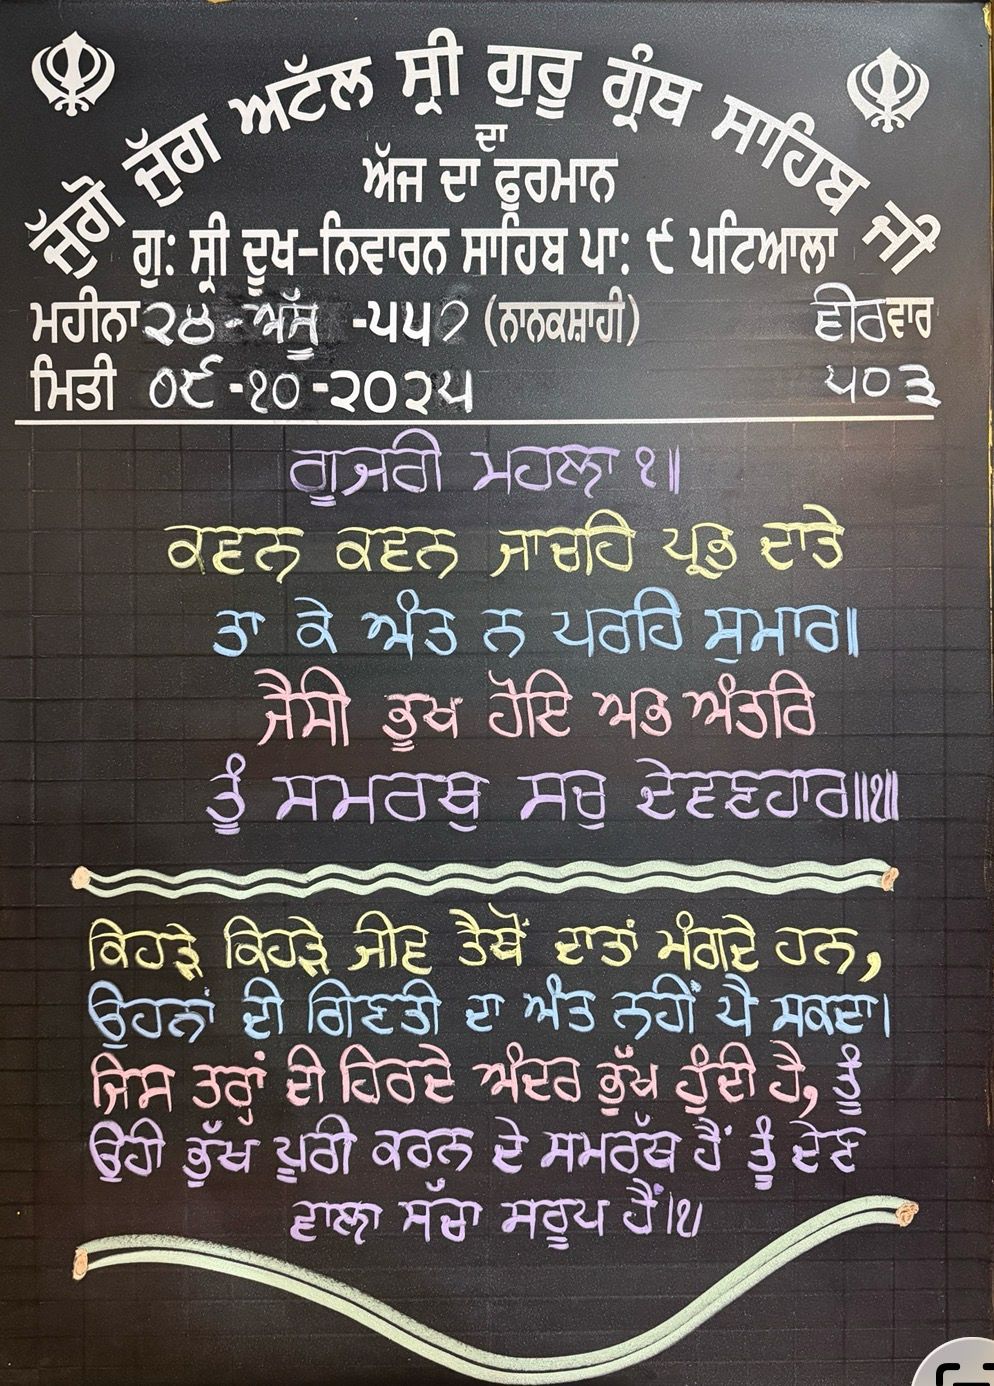 ਜੁੱਗੋ ਜੁੱਗ ਅਟੱਲ ਸ੍ਰੀ ਗੁਰੂ ਗ੍ਰੰਥ ਸਾਹਿਬ ਜੀ
ਦਾ
ਅੱਜ ਦਾ ਫੁਰਮਾਨ
ਗੁ: ਸ੍ਰੀ ਦੂਖ-ਨਿਵਾਰਨ ਸਾਹਿਬ ਪਾ: ੯ ਪਟਿਆਲਾ
ਮਹੀਨਾ ੨੪-ਅੱਸੂ -੫੫੭ (ਨਾਨਕਸ਼ਾਹੀ) ਵੀਰਵਾਰ
ਮਿਤੀ ੦੯-੧੦-੨੦੨੫ ੫੦੩
ਗੂਜਰੀ ਮਹਲਾ ੧॥
ਕਵਨ ਕਵਨ ਜਾਚਹਿ ਪ੍ਰਭ ਦਾਤੇ
ਤਾ ਕੇ ਅੰਤ ਨ ਪਰਹਿ ਸੁਮਾਰ॥
ਜੈਸੀ ਭੂਖ ਹੋਇ ਅਭ ਅੰਤਰਿ
ਤੂੰ ਸਮਰਥੁ ਸਚੁ ਦੇਵਣਹਾਰ॥੧॥
ਕਿਹੜੇ ਕਿਹੜੇ ਜੀਵ ਤੈਥੋਂ ਦਾਤਾਂ ਮੰਗਦੇ ਹਨ,
ਉਹਨਾਂ ਦੀ ਗਿਣਤੀ ਦਾ ਅੰਤ ਨਹੀਂ ਪੈ ਸਕਦਾ।
ਜਿਸ ਤਰ੍ਹਾਂ ਦੀ ਹਿਰਦੇ ਅੰਦਰ ਭੁੱਖ ਹੁੰਦੀ ਹੈ, ਤੂੰ
ਉਹੀ ਭੁੱਖ ਪੂਰੀ ਕਰਨ ਦੇ ਸਮਰੱਥ ਹੈਂ ਤੂੰ ਦੇਣ
ਵਾਲਾ ਸੱਚਾ ਸਰੂਪ ਹੈਂ।੧।